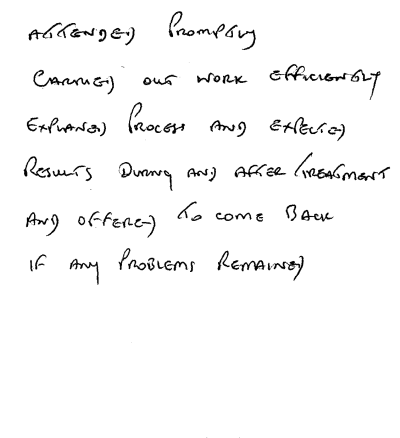 ATTENDED PROMPTLY
CARRIED OUT WORK EFFICIENTLY
EXPLAINED PROCESS AND EXPECTED
RESULTS DURING AND AFTER TREATMENT
AND OFFERED TO COME BACK
IF ANY PROBLEMS REMAINED